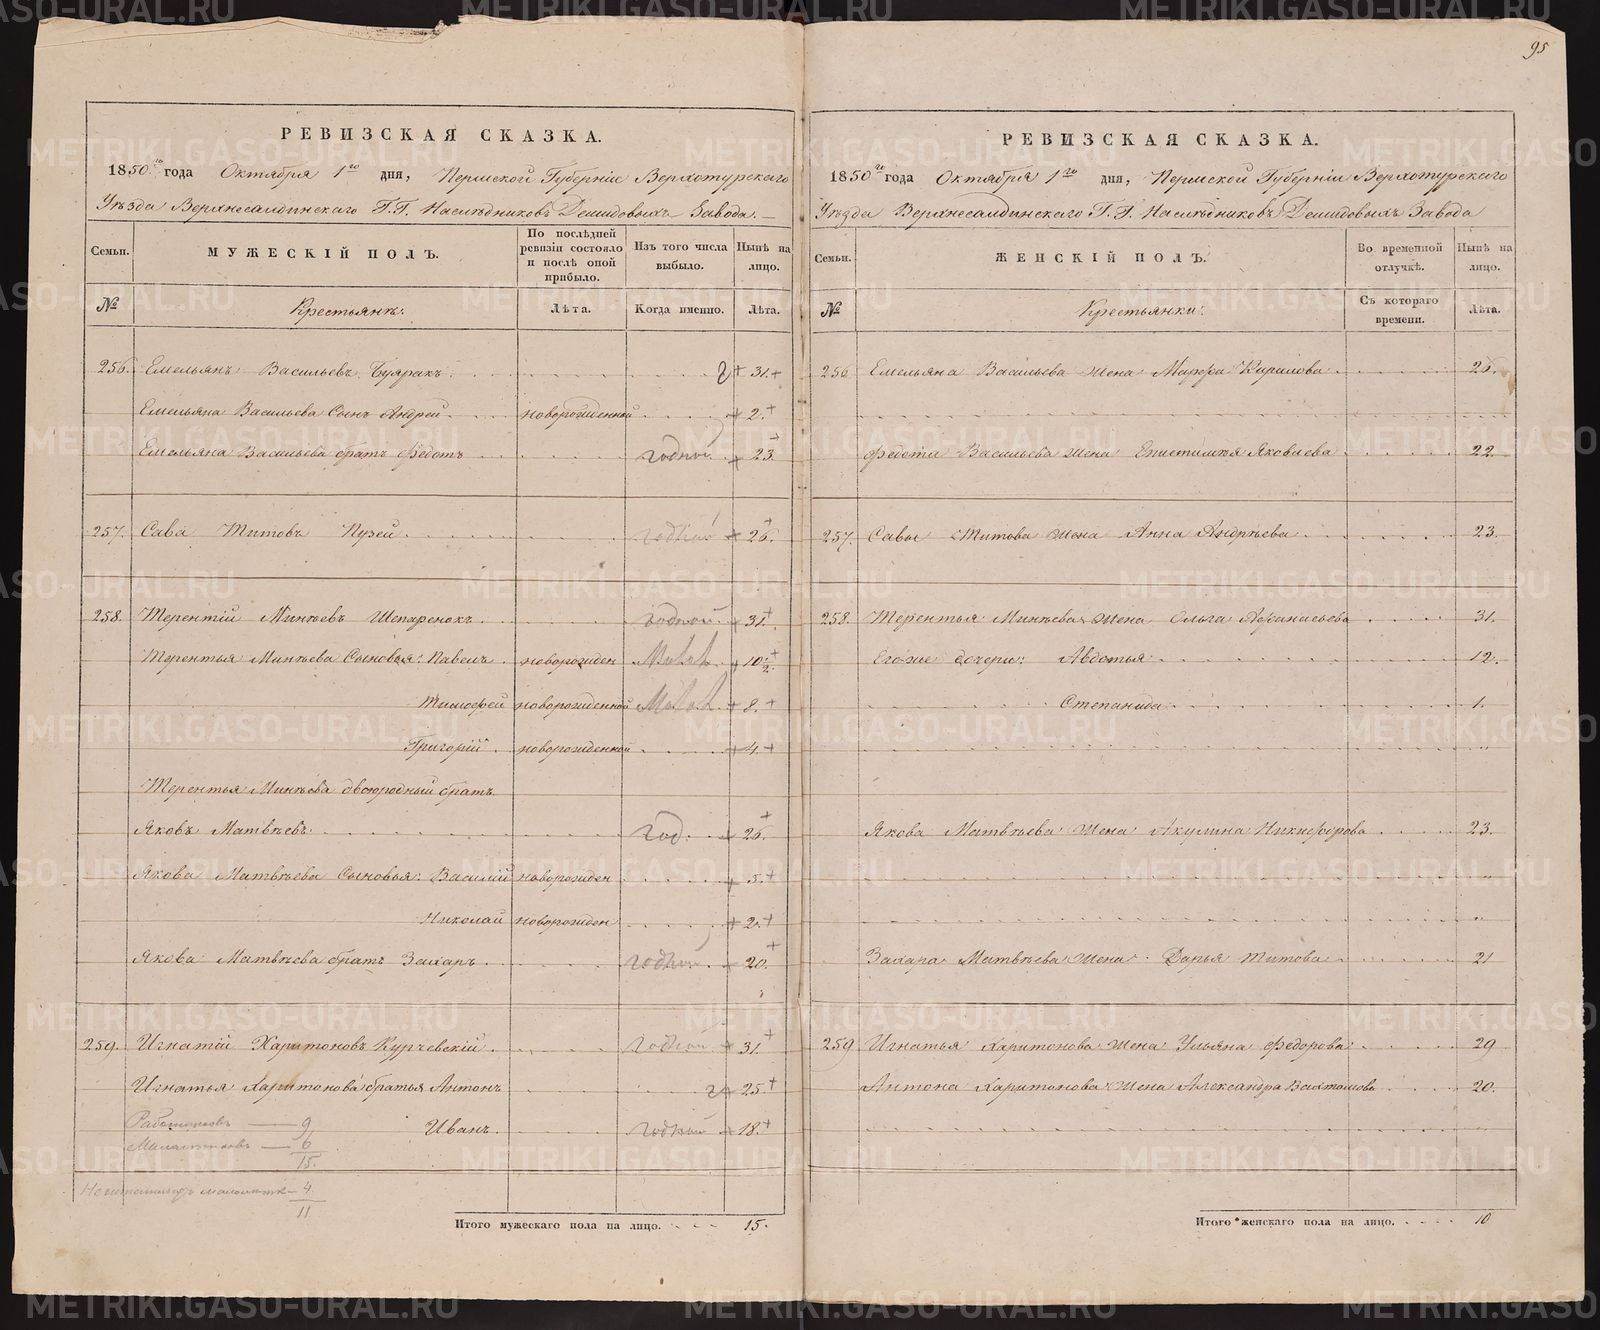 95
РЕВИЗСКАЯ СКАЗКА.
1850го года Октября 1го дня, Пермской Губерніи Верхотурскаго
Уѣзда Верхнесалдинскаго Г.Г. Наслѣдниковъ Демидовыхъ Завода.
Семьи.
МУЖЕСКІЙ ПОЛЪ.
По послѣдней ревизіи состояло и послѣ оной прибыло.
Изъ того числа выбыло.
Нынѣ на лицо.
№
Крестьянъ:
Лѣта.
Когда именно.
Лѣта.
256. Емельянъ Васильевъ Буяракъ 31.
Емельяна Васильева Сынъ Андрей новорожденной 2.
Емельяна Васильева братъ Федотъ годной 23.
257. Сава Титовъ Пузей годной 26.
258. Терентій Минѣевъ Шепаренокъ годной 31.
Терентья Минѣева Сыновья: Павелъ новорожден Малол. 10 1/2
Тимофей новорожденной Малол. 8.
Григорій новорожденной 4.
Терентья Минѣева двоюродный братъ
Яковъ Матвѣевъ год. 26.
Якова Матвѣева Сыновья: Василій новорожден 5.
Николай новорожден 2.
Якова Матвѣева братъ Захаръ годной 20.
259. Игнатій Харитоновъ Курчевскій годной 31.
Игнатья Харитонова братья Антонъ 25
Иванъ годной 18.
Работниковъ — 9
Малолетковъ — 6
15.
4
11
Итого мужескаго пола на лицо. 15.
РЕВИЗСКАЯ СКАЗКА.
1850го года Октября 1го дня, Пермской Губерніи Верхотурскаго
Уѣзда Верхнесалдинскаго Г.Г. Наслѣдниковъ Демидовыхъ Завода
Семьи.
ЖЕНСКІЙ ПОЛЪ.
Во временной отлучкѣ.
Нынѣ на лицо.
№
Крестьянки:
Съ котораго времени.
Лѣта.
256 Емельяна Васильева жена Марфа Кирилова 26.
Федота Васильева жена Епистимья Яковлева 22.
257. Савы Титова жена Анна Андрѣева 23.
258. Терентья Минѣева жена Ольга Афанасьева 31.
Его же дочери: Авдотья 12.
Степанида 1.
Якова Матвѣева жена Акулина Никифорова 23.
Захара Матвѣева жена Дарья Титова 21
259 Игнатья Харитонова жена Ульяна Федорова 29
Антона Харитонова жена Александра Вахтомова 20.
Итого женскаго пола на лицо. 10
METRIKI.GASO-URAL.RU